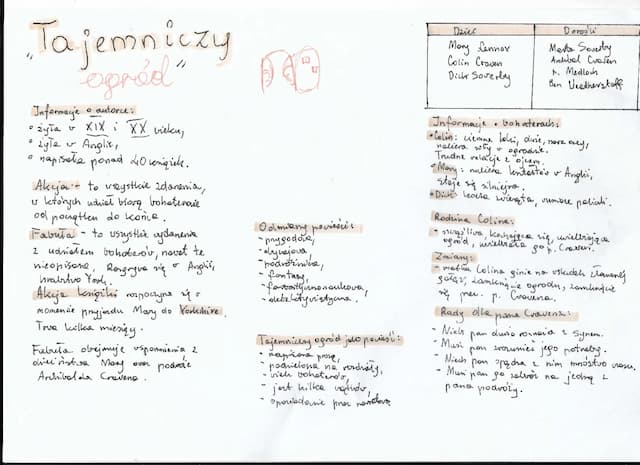 "Tajemniczy
ogród"
Informacje o autorce:
• żyła w XIX i XX wieku,
• żyła w Anglii,
• napisała ponad 40 książek.
Akcja - to wszystkie zdarzenia,
w których udział biorą bohaterowie
od początku do końca.
Fabuła - to wszystkie wydarzenia
z udziałem bohaterów, nawet te
nieopisane. Rozgrywa się w Anglii,
hrabstwo York.
Akcja książki rozpoczyna się w
momencie przyjazdu Mary do Yorkshire.
Trwa kilka miesięcy.
Fabuła obejmuje wspomnienia z
dzieciństwa Mary oraz podróże
Archibalda Cravena.
Odmiany powieści:
- przygodowa,
- obyczajowa,
- podróżnicza,
- fantasy,
- fantastycznonaukowa,
- detektywistyczna.
Tajemniczy ogród jako powieść:
- napisana prozą,
- podzielona na rozdziały,
- wielu bohaterów,
- jest kilka wątków,
- opowiadanie przez narratora
Dzieci
Dorośli
Mary Lennox
Colin Craven
Dick Soverby
Marta Soverby
Archibal Craven
p. Medlock
Ben Weatherstaff
Informacje o bohaterach:
• Colin: ciemne loki, duże, szare oczy,
nabiera siły w ogrodzie.
Trudne relacje z ojcem.
• Mary: nabiera kształtów w Anglii,
staje się silniejsza.
• Dick: kocha zwierzęta,
Rodzina Colina:
- szczęśliwa, kochająca się, uwielbiająca
ogród, uwielbiała go p. Craven.
Zmiany:
- matka Colina ginie na skutek złamanej
gałęzi, zamknięcie ogrodu, zamknięcie
się przez p. Cravena.
Rady dla pana Cravena:
- Niech pan dużo rozmawia z synem.
- Musi pan zrozumieć jego potrzeby.
- Niech pan spędza z nim mnóstwo czasu.
- Musi pan go zabrać na jedną z
pana podróży.